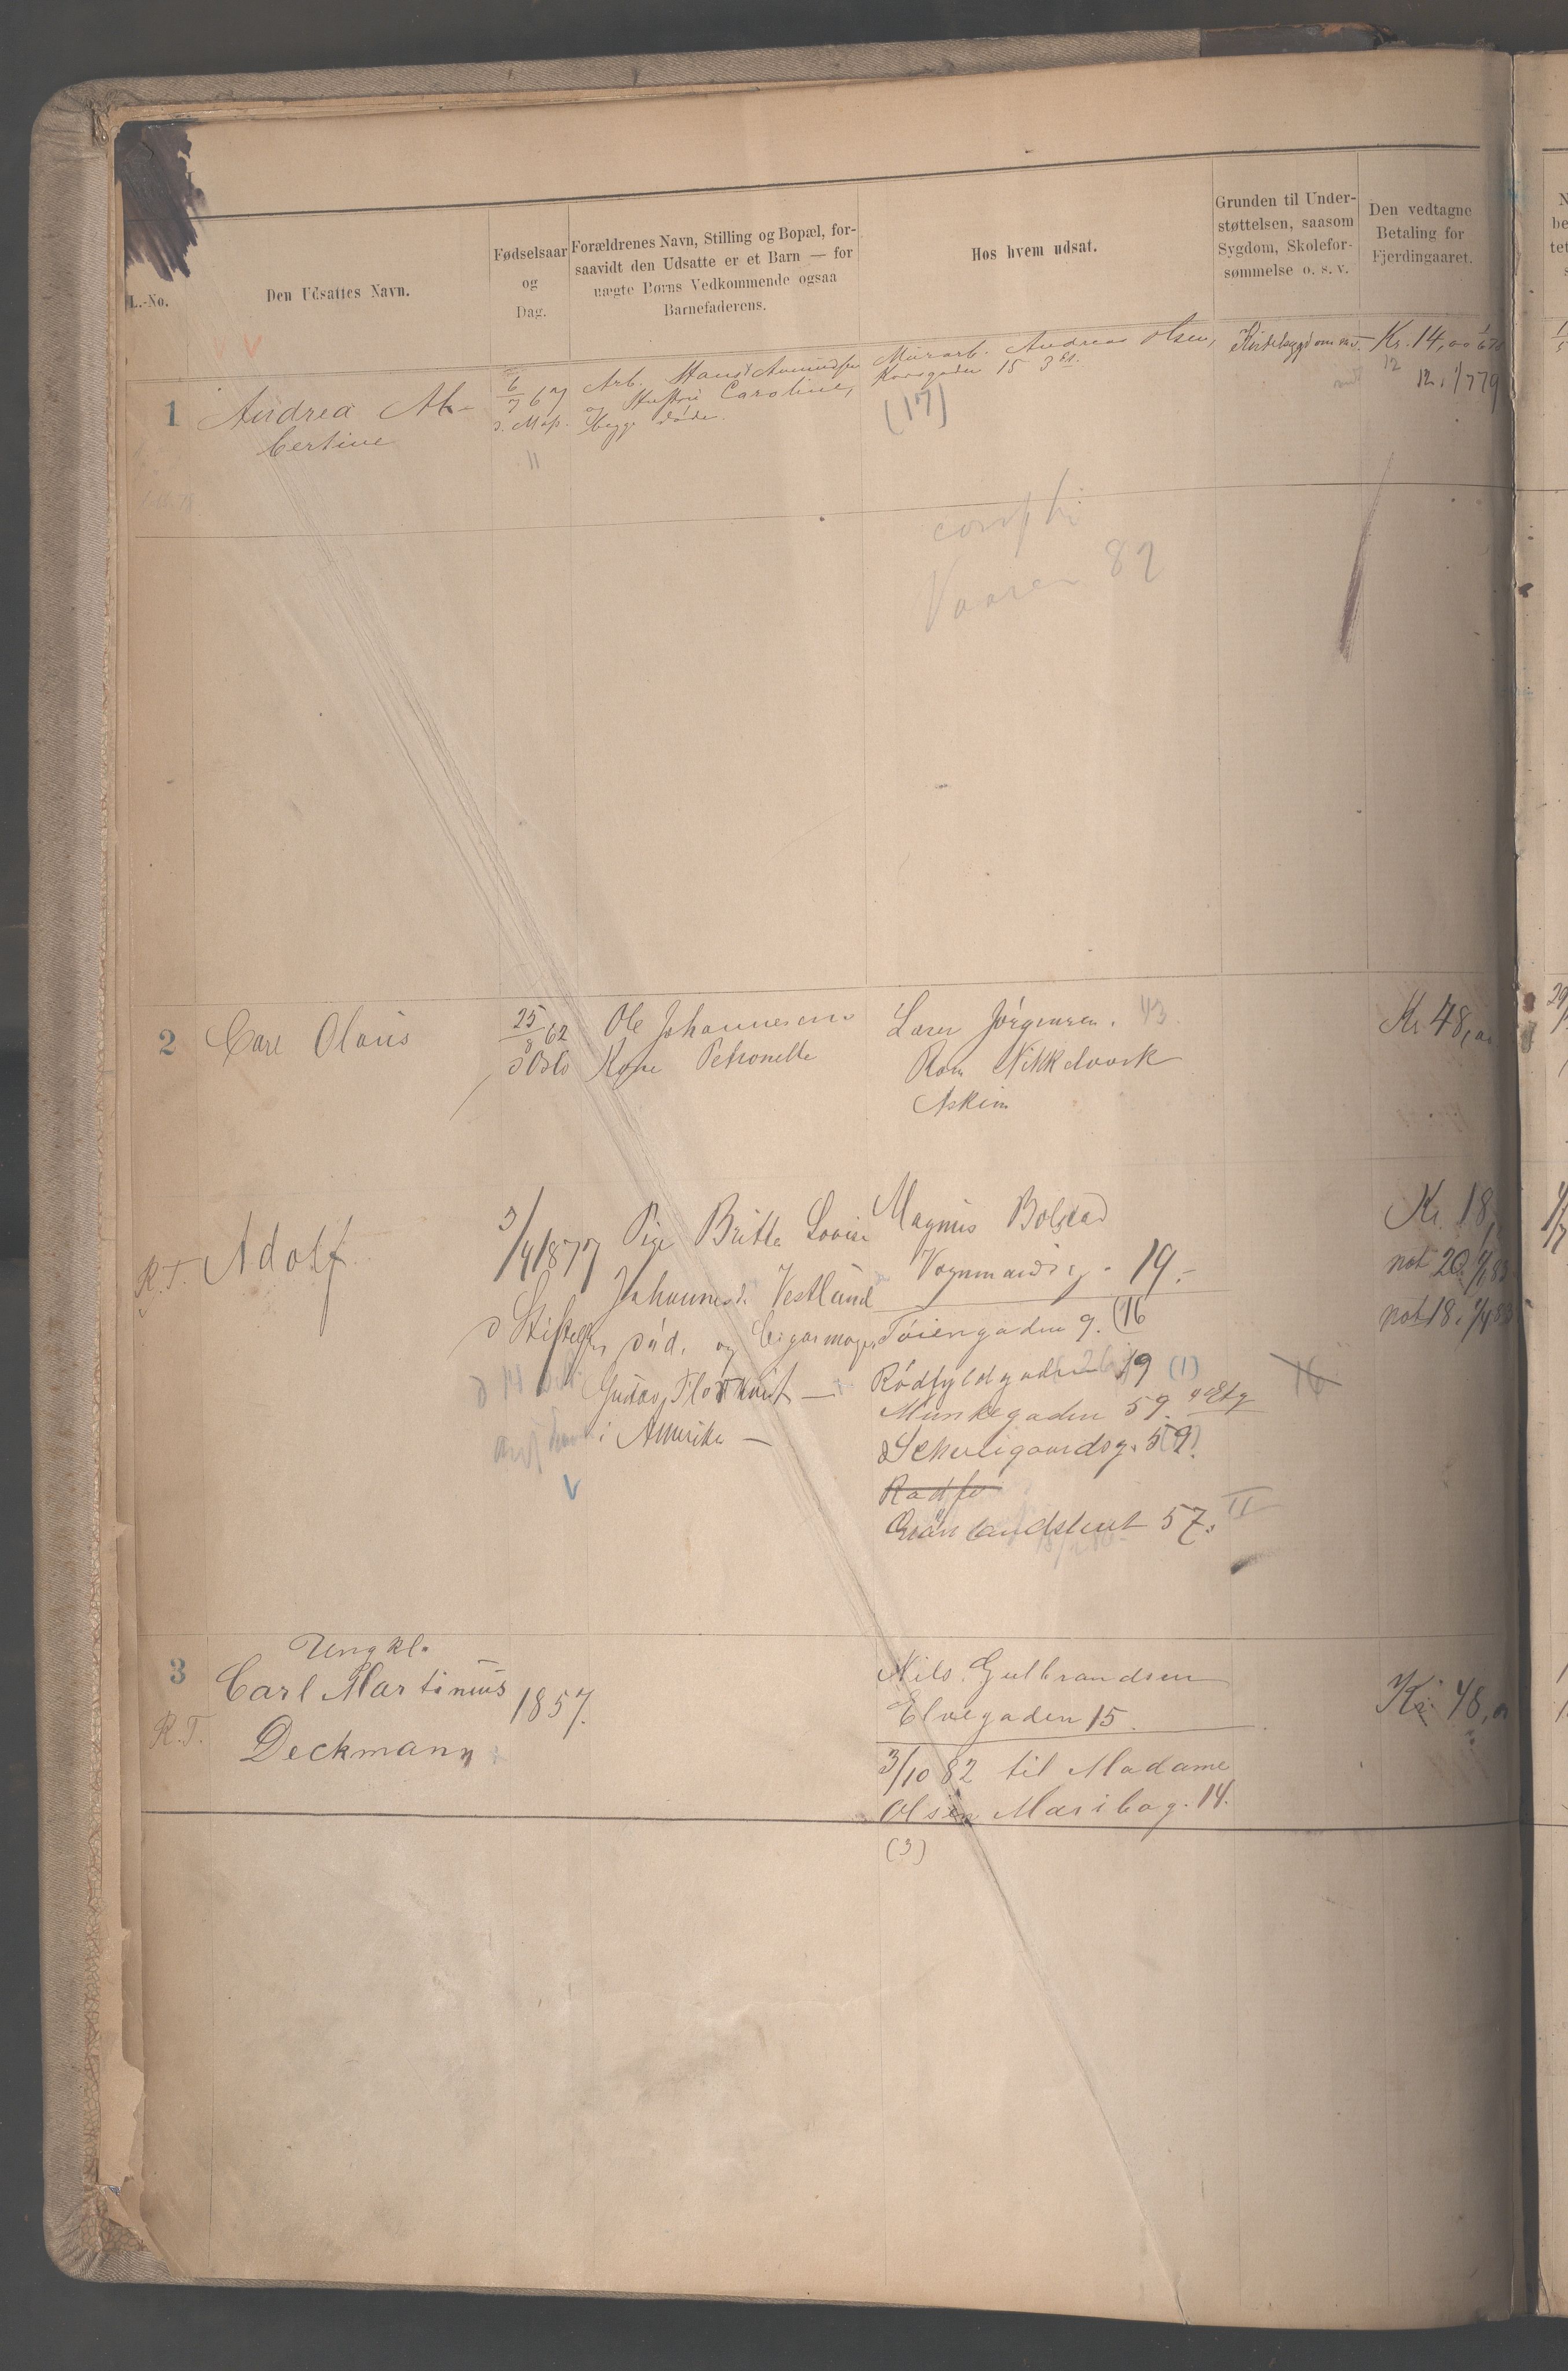 L.-No.
Den Udsattes Navn.
Fødselsaar
og
Dag.
Forældrenes Navn, Stilling og Bopæl, for-
saavidt den Udsatte er et Barn — for
uægte Børns Vedkommende ogsaa
Barnefaderens.
Hos hvem udsat.
Grunden til Under-
støttelsen, saasom
Sygdom, Skolefor-
sømmelse o. s. v.
Den vedtagne
Betaling for
Fjerdingaaret.
1
Andrea Al-
bertine
6/7 67
Arb. Hans Amundsen
og Hustru Caroline,
begge døde.
Murarb. Andreas Olsen,
15 3 Et.
(17)
Kr. 14,00
12
Vaaren 82
2
Carl Olaus
25/8 62
d Oslo
Ole Johannesen
Petronelle
Lars Jørgensen. 43
Nikkelværk
Askim
Kr 48,00
R.T. Adolf
3/4 1877
Pige Britta Lovise
Johannesd. Vestlund
død, og Cigarmager
Gustav
i Amerika —
Magnus Bolstad
Vognmandsg. 19.-
Tøiengaden 9. (16
Rødfyldgaden 19 (1)
Munkegaden 59. 4 Etg
Schweigaardsg. 59.
Radfo
Grønlandsleret 57. II
16
Kr. 18,
not 20
not 18.
3
R.T.
Ungkl.
Carl Martinius
Deckmann
1857.
Nils Gulbrandsen
Elvegaden 15.
3/10 82 til Madame
Olsen Maribog. 14.
(3)
Kr. 48,00